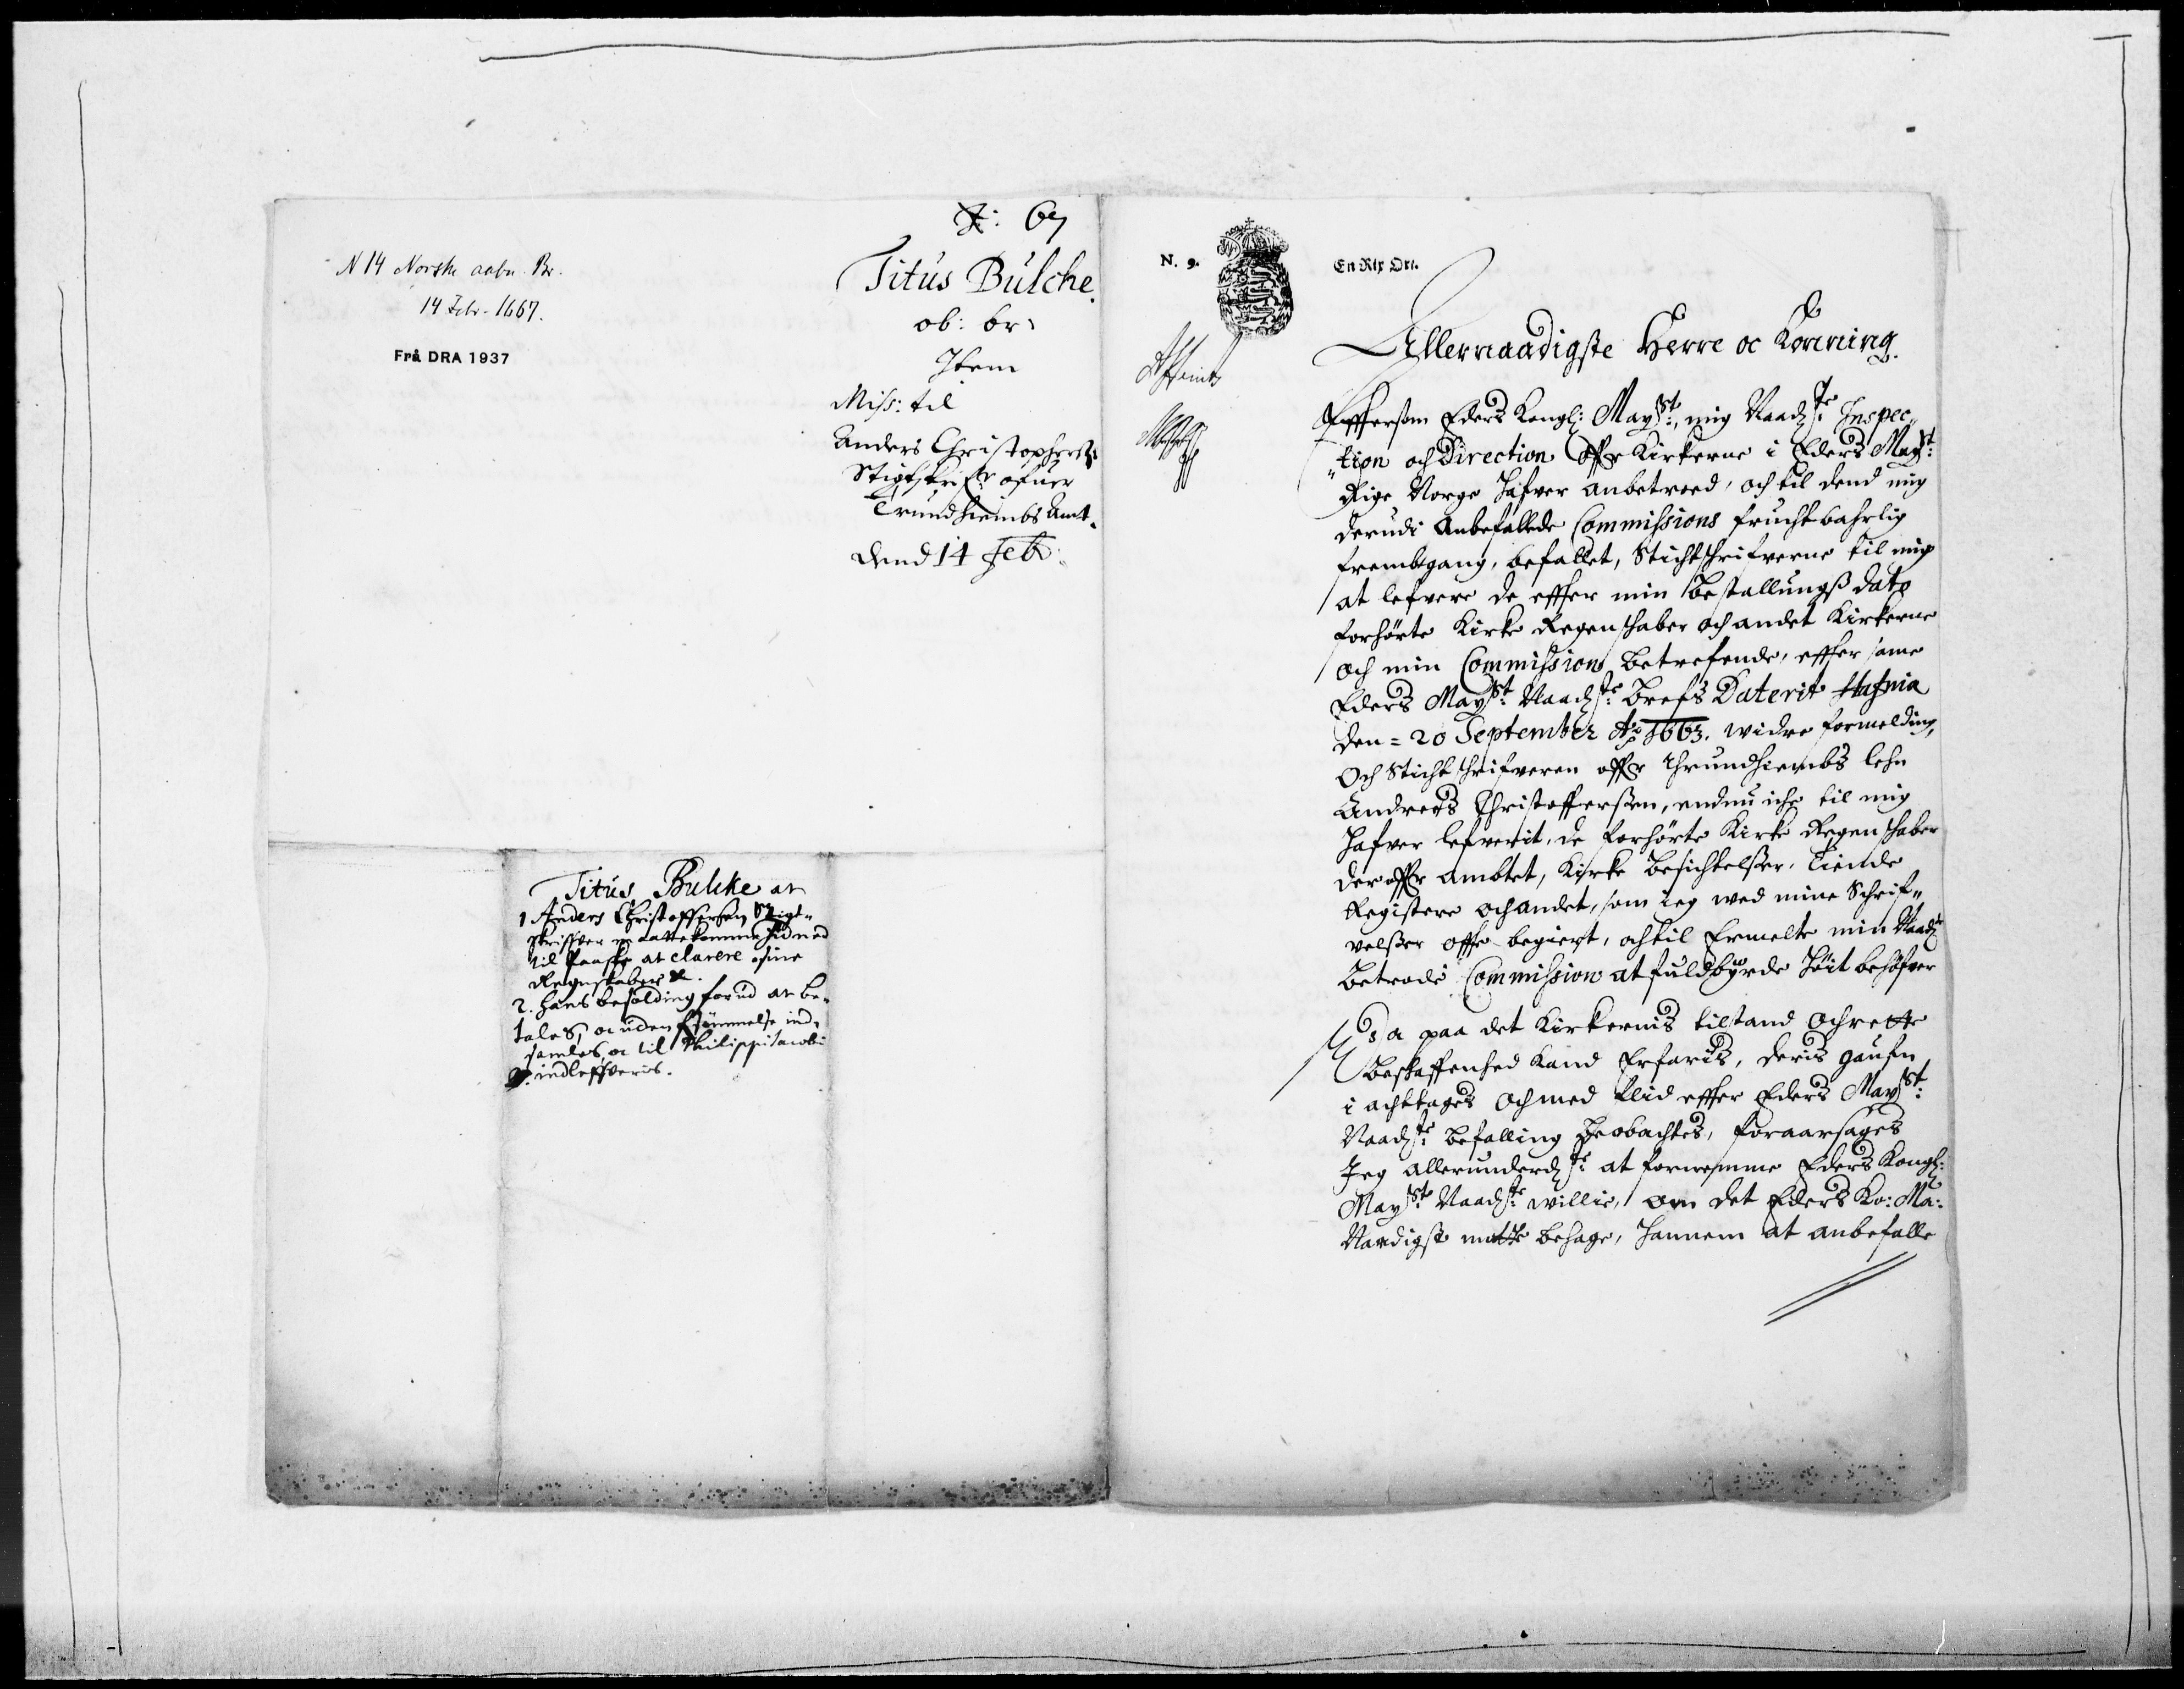 N 14 Norske aabn. Br.
14 Febr. 1667.
Frå DRA 1937
67
Titus Bülche
ob: br:
Item
Miss: til
Anders Christophers:
Stigtskrifr ofuer
Trundhiembs Amt.
dend 14 Feb:
Titus Bulcke at
1 Anders Christoffersøn Stigt-
skriffver maatte komme hid ned
til Paaske at clarere sine
Regnskaber &.
2. hans besolding forud at be-
tales, oc uden forsømmelse ind-
samles, oc til Philippi Jacobi
indleffveris.
N. 9.
En Rix Ort.
Allernaadigste Herre oc Konning.
Effersom Eders Kongl: Mayst:, mig Naadste: Inspec„
„tion och Direction offr Kirkerne i Eders Mayst:
Rige Norge hafver anbetroed, och til dend mig
derudi Anbefallede Commissions fruchtbahrlig
frembgang, befallet, Stichtschrifverne til mig
at lefvere de effter min Bestallungß dato
forhørte Kirke Regenschaber och andet Kirkerne
och min Commission betrefende, effter same
Eders Mayst: Naadste: brefs Daterit Hafnia
den = 20 September Ao 1663. widre formelding,
Och Stichtschrifveren offr Thrundhiembs lehn
Andrers Christofferßen, endnu iche til mig
hafver lefverit, de forhørte Kirke Regenschaber
der offr ambtet, Kirke besichtelßer, Tiende
Registere och andet, som ieg wed mine Schrif„
velßer offte begiert, och til Ermelte min Naadst
betroede Commission at fuldbyrde höit behöfver
Da paa det Kirkernis tilstand och rette
beskaffenhed kand Erfaris, deris gaufn
i achttages och med flid effter Eders Mayst:
Naadste: befalling beobachtes, foraarsages
Jeg allerunderdste: at fornemme Eders Kongl:
Mayst: Naadste: willie, om det Eders Ko: Ma:
Naadigst motte behage, hannem at anbefalle